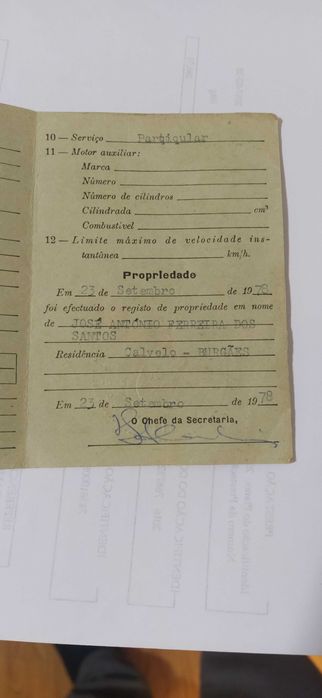 10 — Serviço Particular
11 — Motor auxiliar:
Marca
Número
Número de cilindros
Cilindrada cm³
Combustível
12 — Limite máximo de velocidade ins-
tantânea km/h.
Propriedade
Em 23 de Setembro de 1978
foi efectuado o registo de propriedade em nome
de JOSÉ ANTÓNIO FERREIRA DOS
SANTOS
Residência Calvelo - BURGÃES
Em 23 de Setembro de 1978
O Chefe da Secretaria,